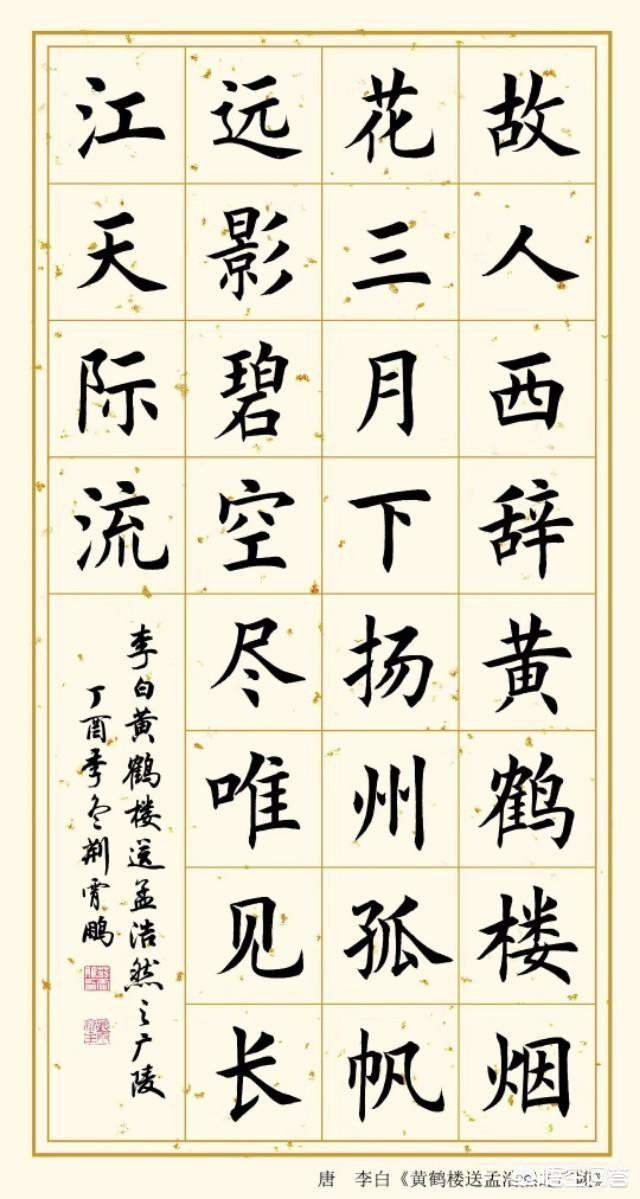 故人西辞黄鹤楼烟
花三月下扬州孤帆
远影碧空尽唯见长
江天际流
李白黄鹤楼送孟浩然之广陵
丁酉季冬荆霄鹏
唐 李白《黄鹤楼送孟浩然
悟空问答